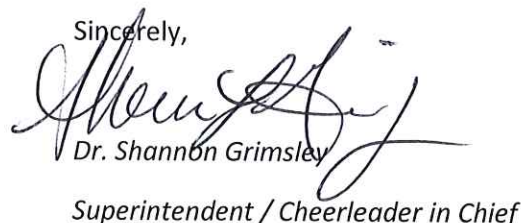 Sincerely,
Dr. Shannon Grimsley
Superintendent / Cheerleader in Chief